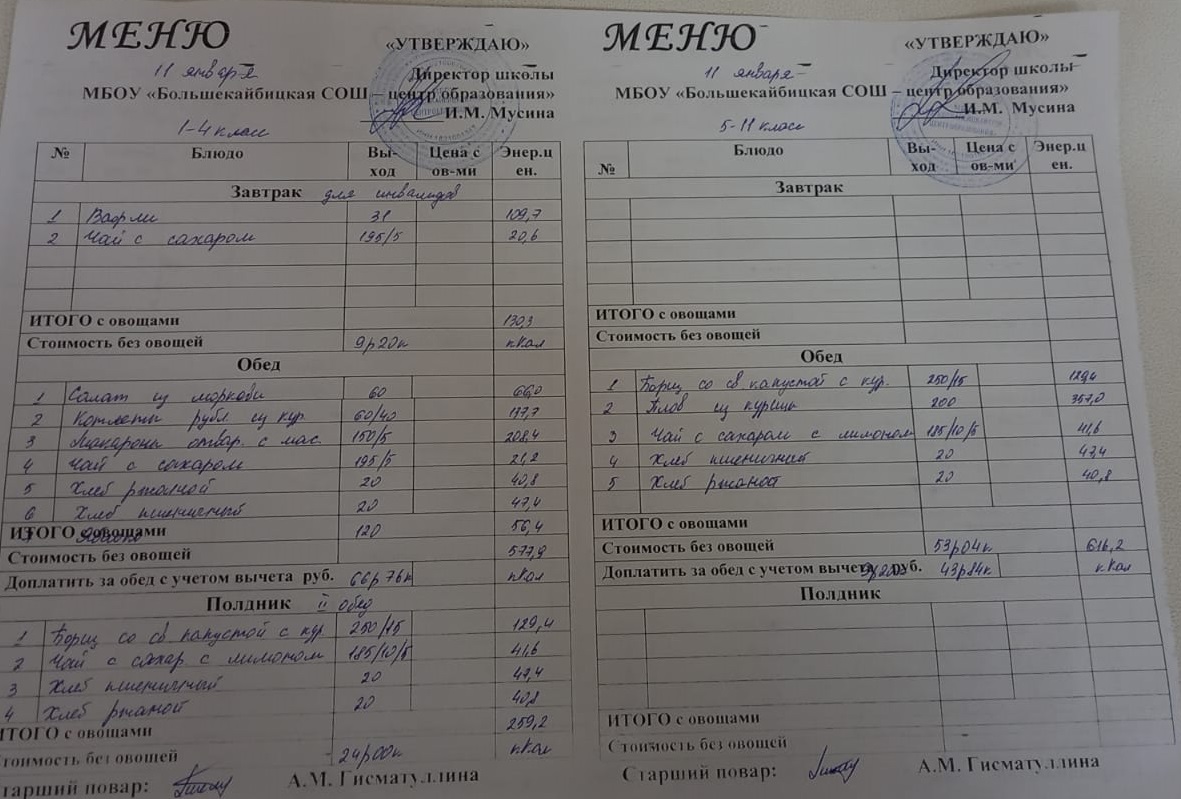 МЕНЮ
«УТВЕРЖДАЮ»
11 января
Директор школы
МБОУ «Большекайбицкая СОШ – центр образования»
И.М. Мусина
1-4 класс
№ Блюдо Вы-ход Цена с ов-ми Энер.ц ен.
Завтрак для инвалидов
1 Вафли 31 109,7
2 Чай с сахаром 195/5 20,6
ИТОГО с овощами 130,3
Стоимость без овощей 9р20к кКал
Обед
1 Салат из моркови 60 66,0
2 Котлеты рубл из кур. 60/40 137,7
3 Макароны отвар. с мас. 150/5 208,4
4 Чай с сахаром 195/5 21,2
5 Хлеб ржаной 20 40,8
6 Хлеб пшеничный 20 47,4
ИТОГО с овощами 120 56,4
Стоимость без овощей 577,9
Доплатить за обед с учетом вычета руб. 66р76к кКал
Полдник II обед
1 Борщ со св капустой с кур 250/15 129,4
2 Чай с сахар с лимоном 185/10/5 41,6
3 Хлеб пшеничный 20 47,4
4 Хлеб ржаной 20 40,8
ИТОГО с овощами 259,2
Стоимость без овощей 24р00к кКал
Старший повар: А.М. Гисматуллина
МЕНЮ
«УТВЕРЖДАЮ»
11 января
Директор школы
МБОУ «Большекайбицкая СОШ – центр образования»
И.М. Мусина
5-11 класс
№ Блюдо Вы-ход Цена с ов-ми Энер.ц ен.
Завтрак
ИТОГО с овощами
Стоимость без овощей
Обед
1 Борщ со св капустой с кур. 250/15 129,4
2 Плов из курицы 200 357,0
3 Чай с сахаром с лимоном 185/10/5 41,6
4 Хлеб пшеничный 20 47,4
5 Хлеб ржаной 20 40,8
ИТОГО с овощами
Стоимость без овощей 53р04к 616,2
Доплатить за обед с учетом вычета руб. 43р84к кКал
Полдник
ИТОГО с овощами
Стоимость без овощей
Старший повар: А.М. Гисматуллина